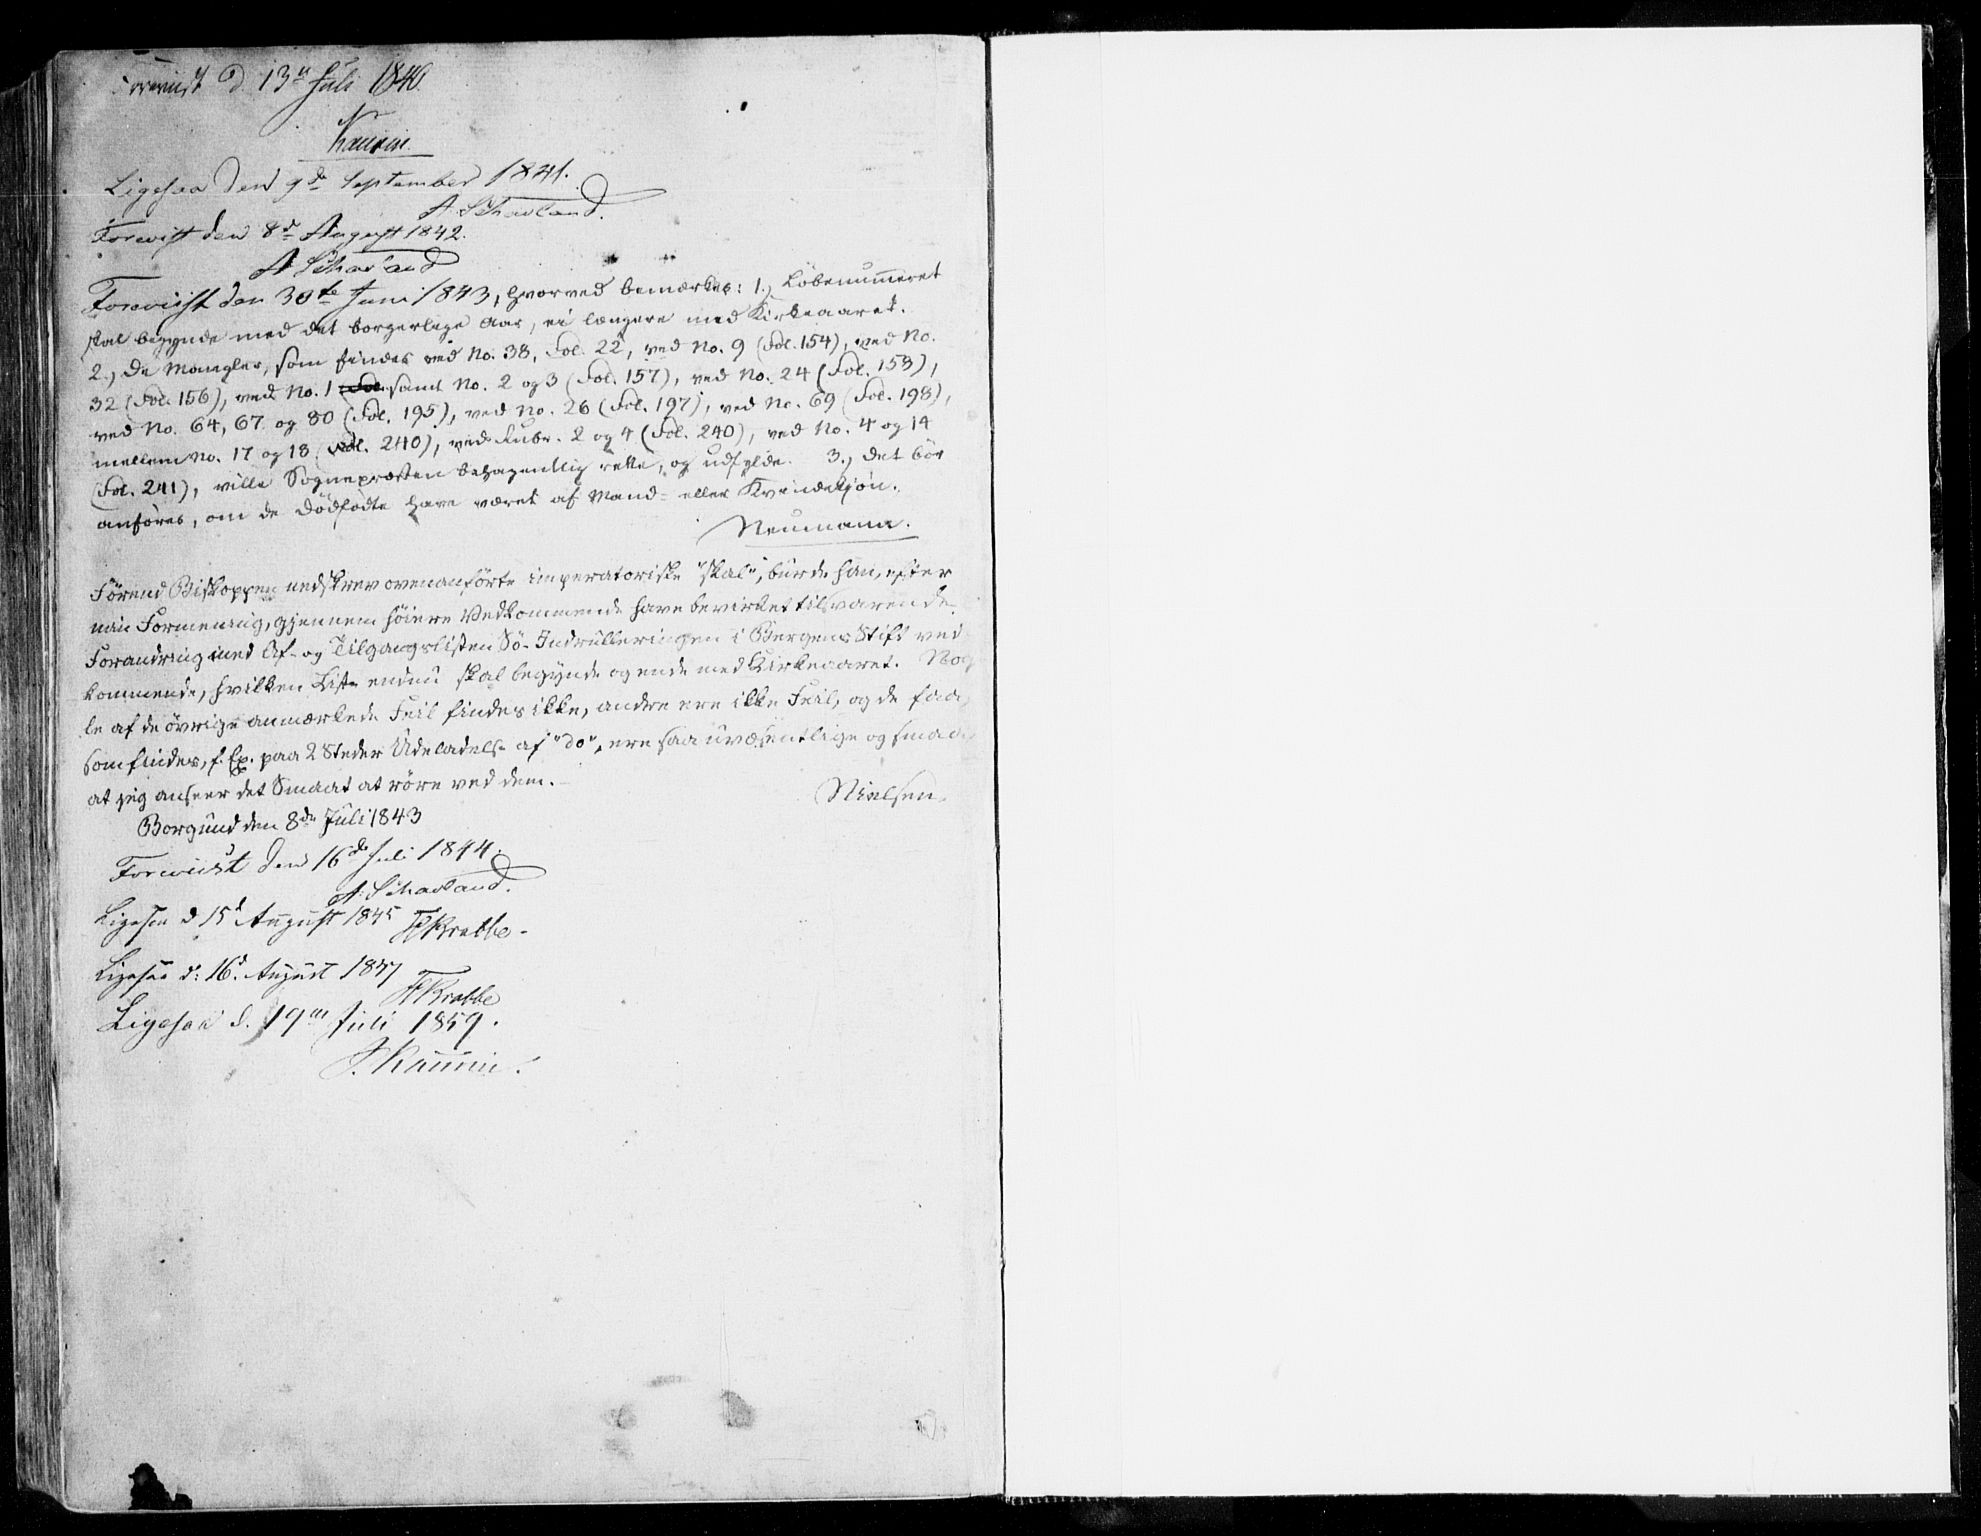 Foreviist d 13de Juli 1840.
Kaurin.
Ligesaa den 9de September 1841.
A. Schavland.
Foreviist den 8de August 1842.
A. Schavland
Foreviist den 30te Juni 1843, hvorved bemærkes: 1.) Löbenummeret
skal begynde med det borgerlige Aar, ei længere med Kirkeaaret.
2.) De Mangler, som findes ved No. 38, Fol. 22, ved No. 9 (Fol. 154), ved No.
32 (Fol. 156), ved No. 1 samt No. 2 og 3 (Fol. 157), ved No. 24 (Fol. 158),
ved No. 64, 67 og 80 (Fol. 195), ved No. 26 (Fol. 197), ved No. 69 (Fol. 198),
mellem No. 17 og 18 (Fol. 240), ved Rubr. 2 og 4 (Fol. 240), ved No. 4 og 14
(Fol. 241), ville Sognepræsten behagentlig rette, og udfylde. 3.) Det bör
anföres, om de Dödfödte have været af Mand- eller Kvindekjön.
Neumann.
Förend Biskoppen nedskrev ovenanförte imperatoriske "skal", burde han, efter
min Formening, gjennem höiere Vedkommende have bevirket tilsvarende
Forandring med Af- og Tilgangslisten Sö-Indrulleringen i Bergens Stift ved-
kommende, hvilken Liste endnu skal begynde og ende med Kirkeaaret. Nog-
le af de övrige anmærkede Feil findes ikke, andre ere ikke Feil, og de faa,
som findes, f. Ex. paa 2 Steder Udeladelse af "do", ere saa uvæsentlige og smaae,
at jeg anseer det Smaat at röre ved dem.
Nielsen.
Borgund den 8de Juli 1843
Foreviist den 16de Juli 1844.
A. Schavland.
Ligesaa d 15d August 1845 HKrabbe
Ligesaa d: 16d August 1847
HKrabbe
Ligesaa d. 19de Juli 1859.
J. Kaurin.